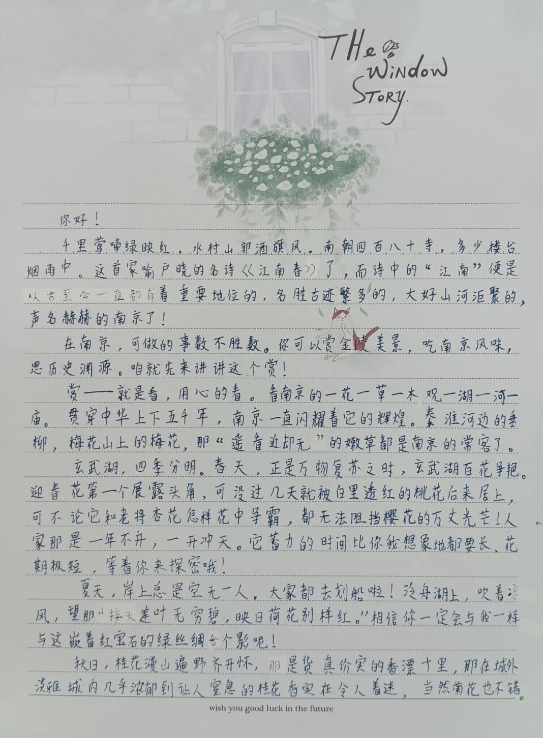 THe
Window
STORY.
你好！
千里莺啼绿映红，水村山郭酒旗风。南朝四百八十寺，多少楼台
烟雨中。这首家喻户晓的名诗《江南春》了，而诗中的“江南”便是
以古至今一直都有着重要地位的，名胜古迹繁多的，大好山河汇聚的，
声名赫赫的南京了！
在南京，可做的事数不胜数。你可以赏金陵美景，吃南京风味，
思历史渊源。咱就先来讲讲这个赏！
赏——就是看，用心的看。看南京的一花一草一木 观一湖一河一
庙。贯穿中华上下五千年，南京一直闪耀着它的辉煌。秦淮河边的垂
柳，梅花山上的梅花，那“遥看近却无”的嫩草都是南京的常客了。
玄武湖，四季分明。春天，正是万物复苏之时，玄武湖百花争艳。
迎春花第一个展露头角，可没过几天就被白里透红的桃花后来居上，
可不论它和老将杏花怎样花中争霸，都无法阻挡樱花的万丈光芒！人
家那是一年不开，一开冲天。它蓄力的时间比你我想象地都要长，花
期极短，等着你来探密哦！
夏天，岸上总是空无一人。大家都去划船啦！泛舟湖上，吹着凉
风，望那“接天莲叶无穷碧，映日荷花别样红。”相信你一定会与我一样
与这嵌着红宝石的绿丝绸合个影呢！
秋日，桂花漫山遍野齐开怀，那是货真价实的香漂十里，那在城外
淡雅城内几乎浓郁到让人窒息的桂花香实在令人着迷，当然菊花也不错。
wish you good luck in the future